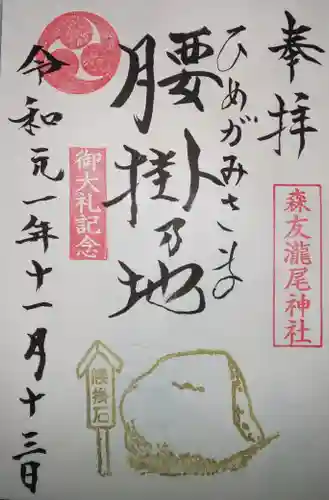 奉拝
森友瀧尾神社
ひめがみさまの
腰掛乃地
御大礼記念
令和元一年十一月十三日
腰掛石